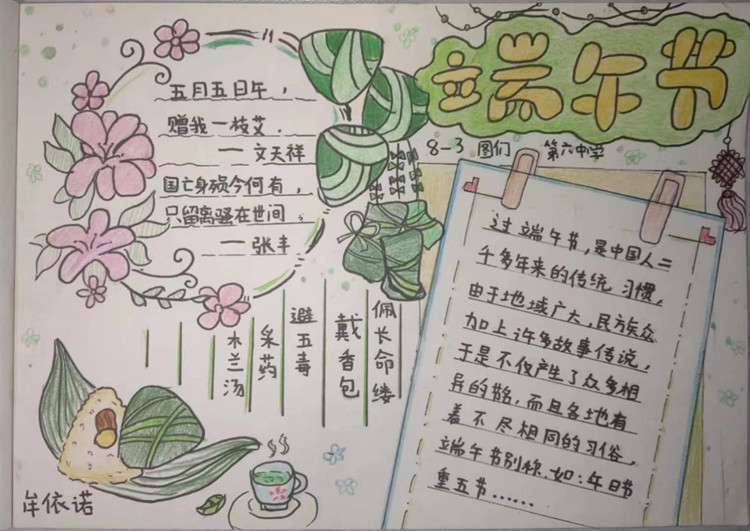 端午节
8-3 图们 第六中学
五月五日午，
赠我一枝艾．
一 文天祥
国亡身殒今何有，
只留离骚在世间．
一 张丰
佩长命缕
戴香包
避五毒
采药
木兰汤
过端午节，是中国人二
千多年来的传统习惯，
由于地域广大，民族众
加上许多故事传说，
于是不仅产生了众多相
异的节名，而且各地有
着不尽相同的习俗，
端午节别称．如：午日节
重五节……
牟依诺